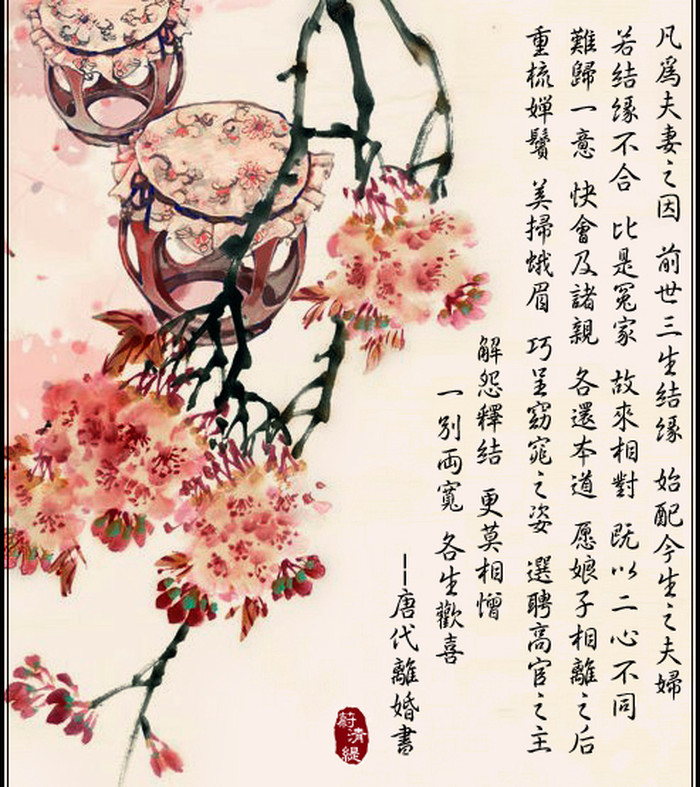 凡爲夫妻之因 前世三生結緣 始配今生之夫婦
若結緣不合 比是冤家 故來相對 既以二心不同
難歸一意 快會及諸親 各還本道 愿娘子相離之后
重梳婵鬢 美掃蛾眉 巧呈窈窕之姿 選聘高官之主
解怨釋结 更莫相憎
一別兩寬 各生歡喜
——唐代離婚書
蔚清緹